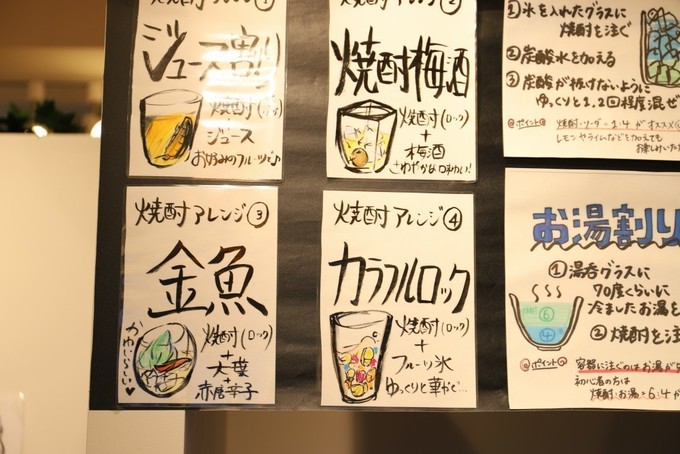 焼酎アレンジ①
ジュース割り
焼酎(ロック)
+
ジュース
お好みのフルーツで♪
焼酎アレンジ②
焼酎梅酒
焼酎(ロック)
+
梅酒
さわやかな味わい!
焼酎アレンジ③
金魚
かわいらしい♥
焼酎(ロック)
+
大葉
+
赤唐辛子
焼酎アレンジ④
カラフルロック
焼酎(ロック)
+
フルーツ氷
ゆっくりと華やぐ…
①氷を入れたグラスに
焼酎を注ぐ
②炭酸水を加える
③炭酸が抜けないように
ゆっくりと1,2回程度混ぜ
ポイント
焼酎:ソーダ=1:4がオススメ
レモンやライムなどを加えても
お楽しみいただ
お湯割り
①湯呑グラスに
70度くらいに
冷ましたお湯を
②焼酎を注
6
4
ポイント
容器に注ぐのはお湯が
初心者の方は
焼酎:お湯=6:4が